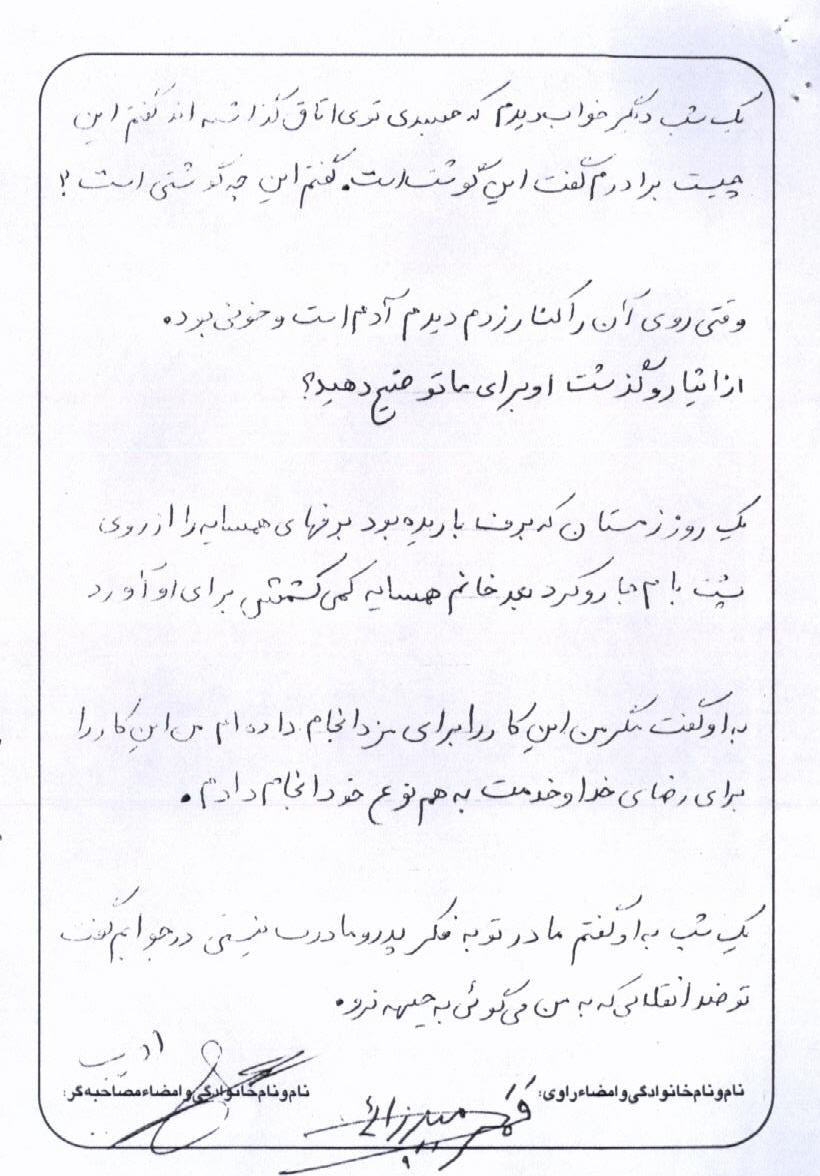 یک شب دیگر خواب دیدم که جسدی توی اتاق گذاشته اند گفتم این
چیست برادرم گفت این گوشت است. گفتم این چه گوشتی است؟
وقتی روی آن را کنار زدم دیدم آدم است و خونی بود.
از ایثار و گذشت او برای ما توضیح دهید؟
یک روز زمستان که برف باریده بود برفهای همسایه را از روی
پشت بام جارو کرد بعد خانم همسایه کمی کشمش برای او آورد
به او گفت مگر من این کار را برای مزد انجام داده ام من این کار را
برای رضای خدا و خدمت به هم نوع خود انجام دادم.
یک شب به او گفتم مادر تو به فکر پدر و مادرت نیستی در جوابم گفت
تو ضد انقلابی که به من می گوئی به جبهه نرو.
ادیب
نام و نام خانوادگی و امضاء راوی:
نام و نام خانوادگی و امضاء مصاحبه گر:
میرزائی